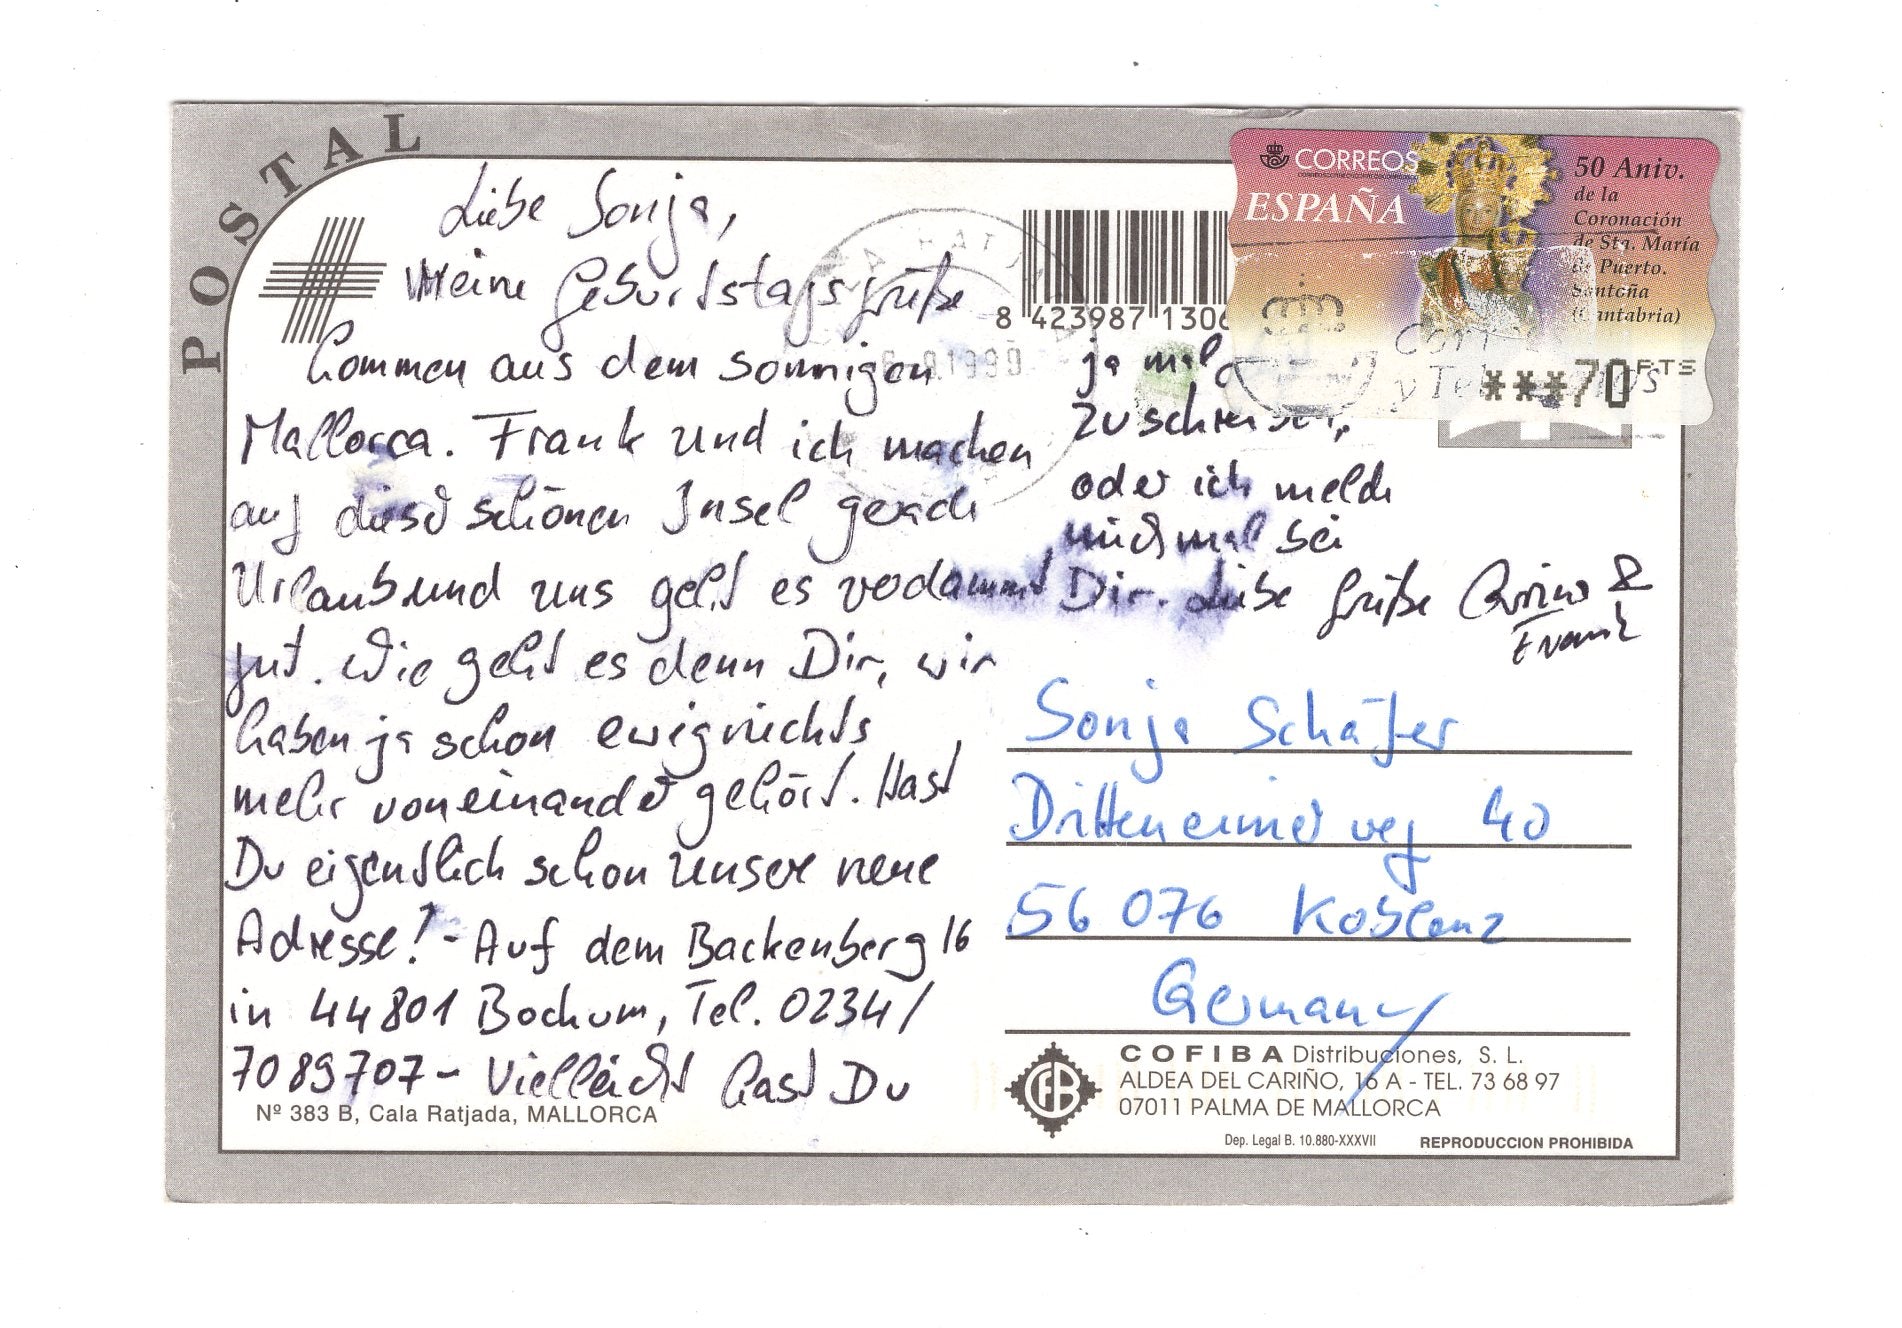 POSTAL
Liebe Sonja,
Meine Geburtstagsgrüße
kommen aus dem sonnigen
Mallorca. Frank und ich machen
auf dieser schönen Insel gerade
Urlaub und uns geht es verdammt
gut. Wie geht es denn Dir, wir
haben ja schon ewig nichts
mehr voneinander gehört. Hast
Du eigentlich schon unsere neue
Adresse! - Auf dem Backenberg 16
in 44801 Bochum, Tel. 0234/
7089707 - Vielleicht hast Du
Nº 383 B, Cala Ratjada, MALLORCA
8 423987 1306
CORREOS
ESPAÑA
50 Aniv.
de la
Coronación
de Sta. María
de Puerto.
Santoña
(Cantabria)
***70 PTS
ja mal
zuschreiben,
oder ich melde
mich mal bei
Dir. Liebe Grüße &
Frank
Sonja Schäfer
weg 40
56076 Koblenz
Germany
COFIBA Distribuciones, S. L.
ALDEA DEL CARIÑO, 16 A - TEL. 73 68 97
07011 PALMA DE MALLORCA
Dep. Legal B. 10.880-XXXVII
REPRODUCCION PROHIBIDA